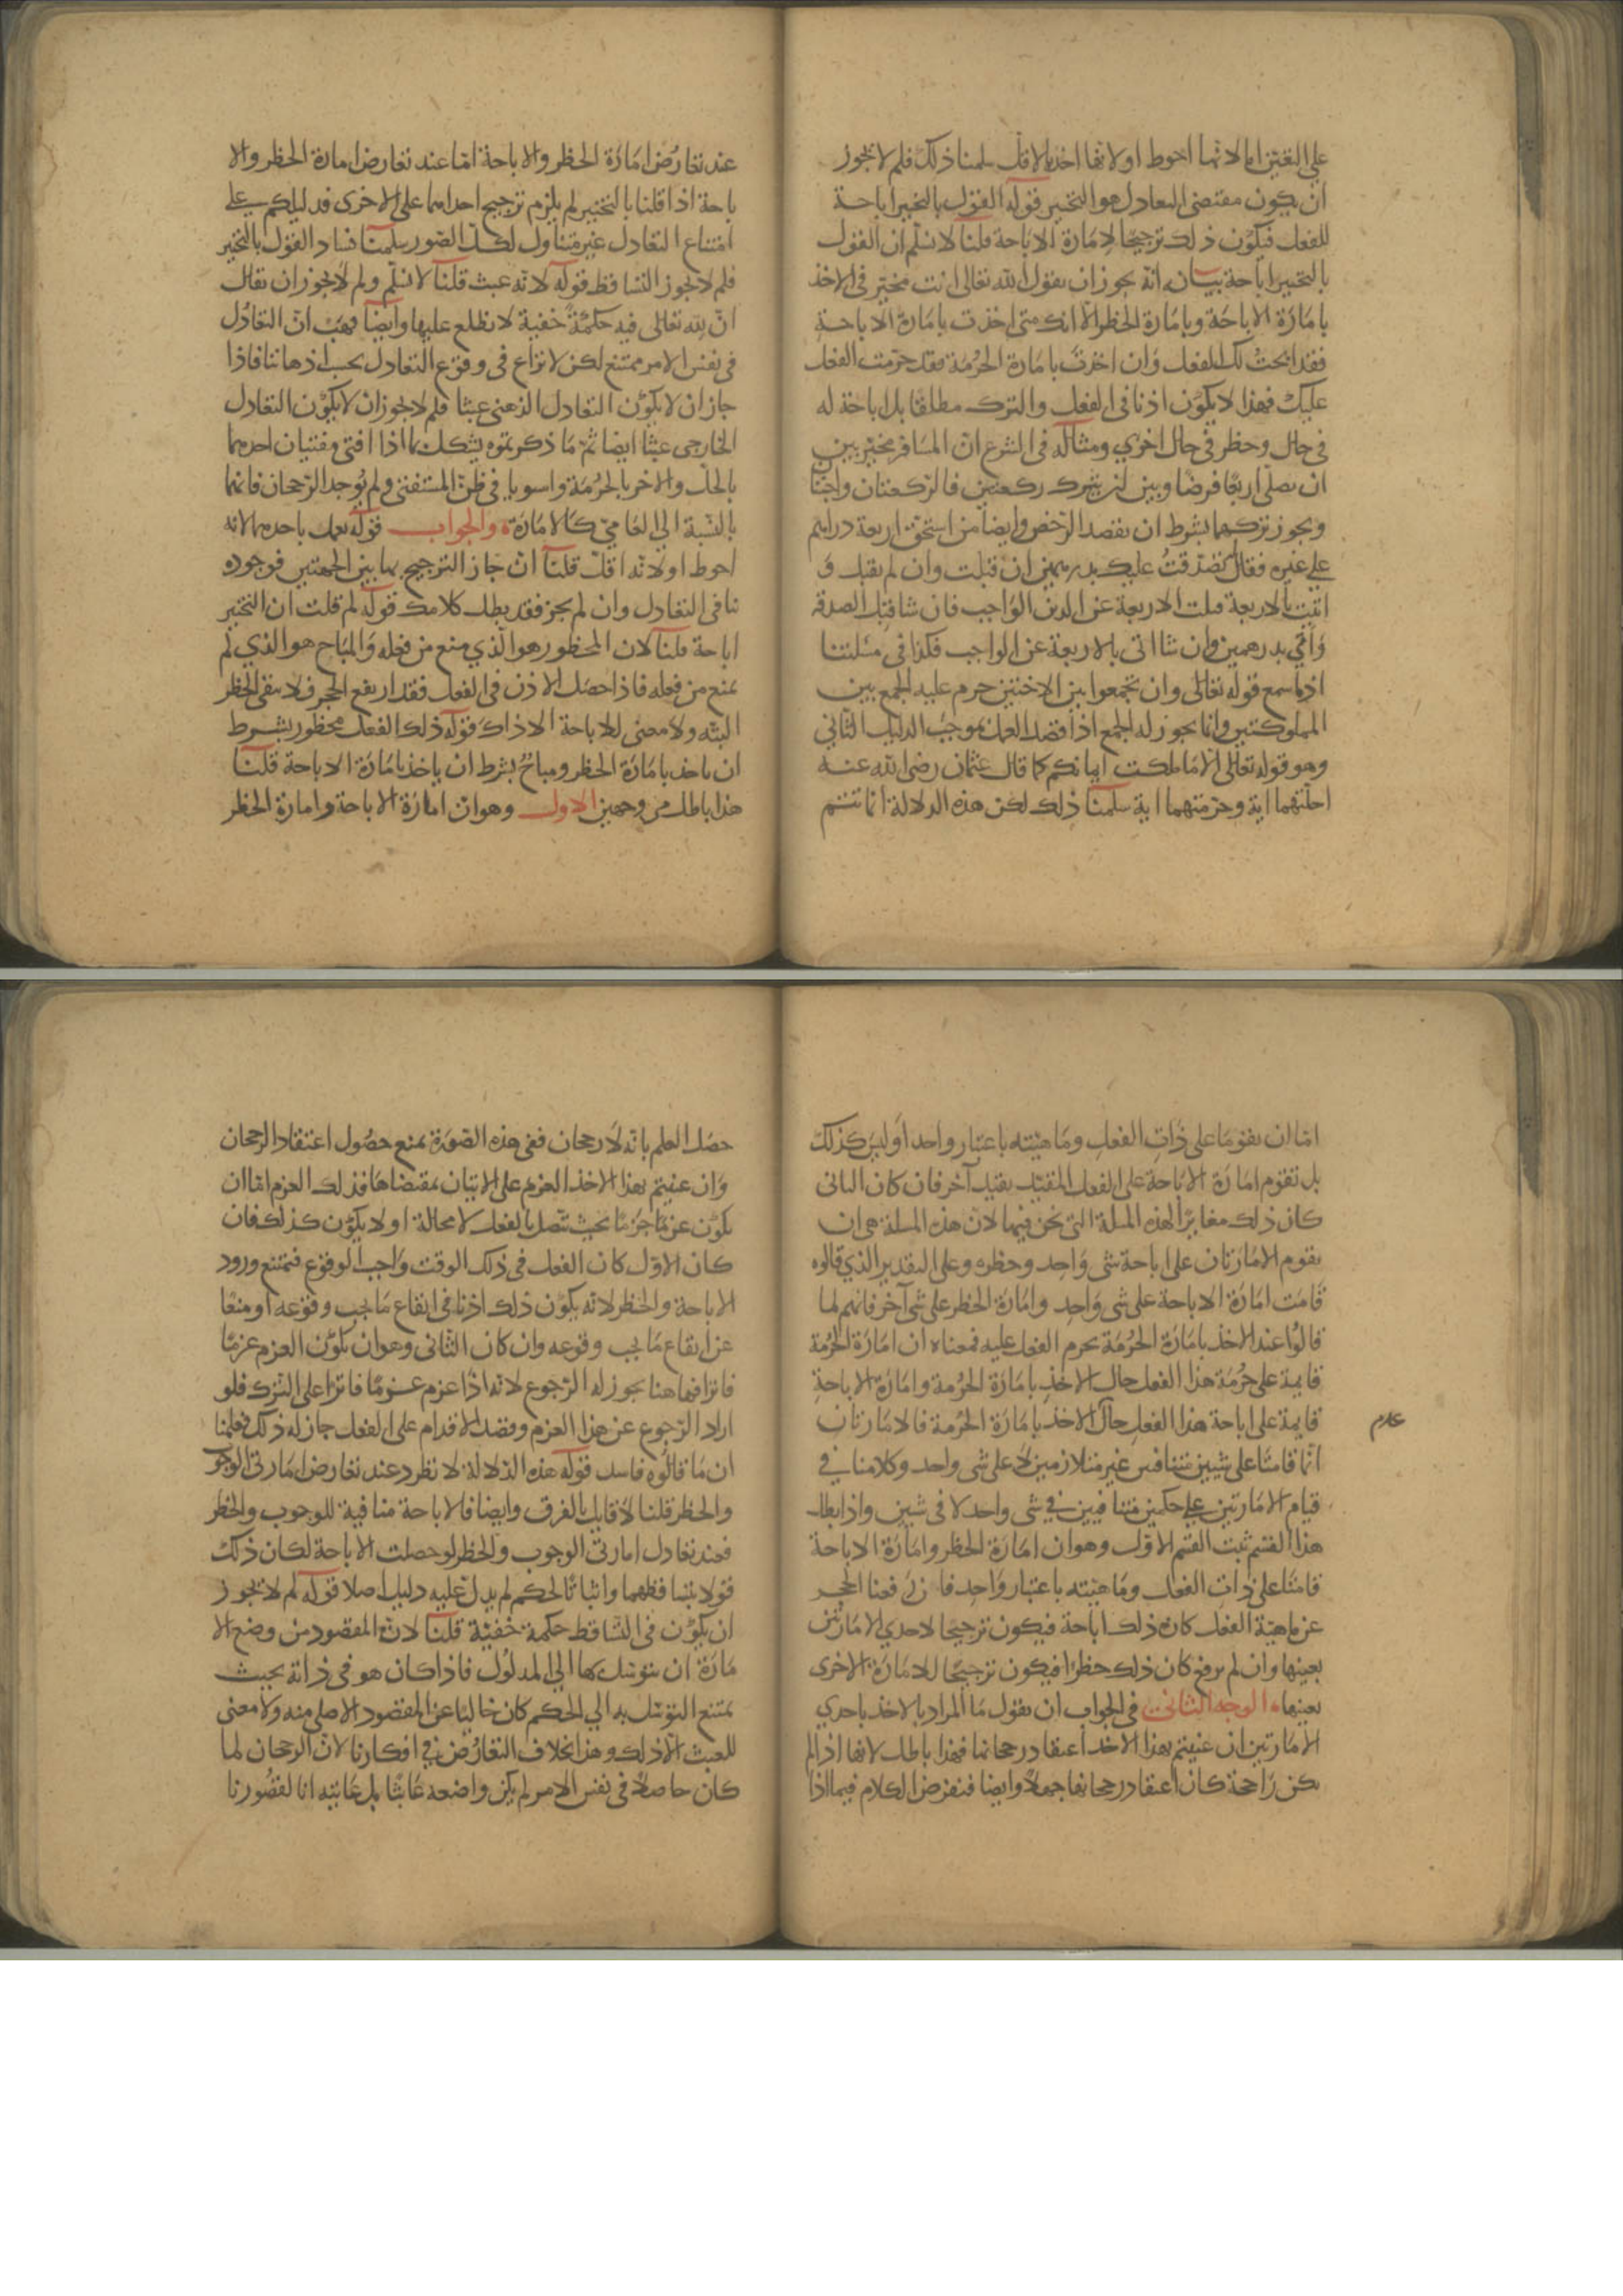 على التعيين اما لانها احوط او لانها اخذ بالاقل سلمنا ذلك فلم لا يجوز
ان يكون مقتضى التعادل هو التخيير قوله القول بالتخيير اباحة
للفعل فيكون ذلك ترجيحا لامارة الاباحة قلنا لا نسلم ان القول
بالتخيير اباحة بيانه انه يجوز ان يقول الله تعالى انت مخير في الاخذ
بامارة الاباحة وبامارة الحظر الا انك متى اخذت بامارة الاباحة
فقد ابحت لك الفعل وان اخذت بامارة الحرمة فقد حرمت الفعل
عليك فهذا لا يكون اذنا في الفعل والترك مطلقا بل اباحة له
في حال وحظر في حال اخرى ومثاله في الشرع ان المسافر مخير بين
ان يصلي اربعا فرضا وبين ان يترك ركعتين فالركعتان واجبتان
ويجوز تركهما بشرط ان يقصد الترخص وايضا من استحق اربعة دراهم
على غيره فقال تصدقت عليك بدرهمين ان قبلت وان لم تقبل و
اتيت بالاربعة قبلت الاربعة عن الدين الواجب فان شا قبل الصدقة
واتي بدرهمين وان شا اتى بالاربعة عن الواجب فكذا في مسلتنا
اذا سمع قوله تعالى وان تجمعوا بين الاختين حرم عليه الجمع بين
المملوكتين وانما يجوز له الجمع اذا قصد العمل بموجب الدليل الثاني
وهو قوله تعالى الا ما ملكت ايمانكم كما قال عثمان رضي الله عنه
احلتهما اية وحرمتهما اية سلمنا ذلك لكن هذه الدلالة انما تتم
عند تعارض امارة الحظر والاباحة اما عند تعارض امارة الحظر والا
باحة اذا قلنا بالتخيير لم يلزم ترجيح احداهما على الاخرى فدليلكم على
امتناع التعادل غير متناول لكل الصور سلمنا فساد القول بالتخيير
فلم لا يجوز التساقط قوله لانه عبث قلنا لا نسلم ولم لا يجوز ان يقال
ان لله تعالى فيه حكمة خفية لا نطلع عليها وايضا فهب ان التعادل
في نفس الامر ممتنع لكن لا نزاع في وقوع التعادل بحسب اذهاننا فاذا
جاز ان لا يكون التعادل الذهني عبثا فلم لا يجوز ان لا يكون التعادل
الخارجي عبثا ايضا ثم ما ذكرتموه يشكل بما اذا افتى مفتيان احدهما
بالحل والاخر بالحرمة واستويا في ظن المستفتي ولم يوجد الرجحان فانهما
بالنسبة الى العامي كالامارة والجواب قوله يعمل باحدهما لانه
احوط او لانه اقل قلنا ان جاز الترجيح بهاتين الجهتين فوجوده
ينافي التعادل وان لم يجز فقد بطل كلامك قوله لم قلت ان التخيير
اباحة قلنا لان المحظور هو الذي منع من فعله والمباح هو الذي لم
يمنع من فعله فاذا حصل الاذن في الفعل فقد ارتفع الحجر فلا يبقى الحظر
البته ولا معنى للاباحة الا ذاك قوله ذلك الفعل محظور بشرط
ان ياخذ بامارة الحظر ومباح بشرط ان ياخذ بامارة الاباحة قلنا
هذا باطل من وجهين الاول وهو ان امارة الاباحة وامارة الحظر
اما ان يقوما على ذات الفعل وماهيته باعتبار واحد او ليس كذلك
بل تقوم امارة الاباحة على الفعل المقيد بقيد آخر فان كان الثاني
كان ذلك مغايرا لهذه المسلة التي نحن فيها لان هذه المسلة هي ان
يقوم الامارتان على اباحة شي واحد وحظره وعلى التقدير الذي قالوه
قامت امارة الاباحة على شي واحد وامارة الحظر على شي آخر فانهم لما
قالوا عند الاخذ بامارة الحرمة يحرم الفعل عليه فمعناه ان امارة الحرمة
قايمة على حرمة هذا الفعل حال الاخذ بامارة الحرمة وامارة الاباحة
قايمة على اباحة هذا الفعل حال الاخذ بامارة الحرمة فالامارتان
عدم
انما قامتا على شيين متنافيين غير متلازمين لا على شي واحد وكلامنا في
قيام الامارتين على حكمين متنافيين في شي واحد لا في شيين واذا بطل
هذا القسم ثبت القسم الاول وهو ان امارة الحظر وامارة الاباحة
قامتا على ذات الفعل وماهيته باعتبار واحد فان رفعنا الحجر
عن ماهية الفعل كان ذلك اباحة فيكون ترجيحا لاحدي الامارتين
بعينها وان لم يرفع كان ذلك حظرا فيكون ترجيحا للامارة الاخرى
بعينها الوجه الثاني في الجواب ان نقول ما المراد بالاخذ باحدي
الامارتين ان عنيتم بهذا الاخذ اعتقاد رجحانها فهذا باطل لانها اذا لم
يكن راجحة كان اعتقاد رجحانها جهلا وايضا فنفرض الكلام فيما اذا
حصل العلم بانه لا رجحان ففي هذه الصورة يمنع حصول اعتقاد الرجحان
وان عنيتم بهذا الاخذ العزم على الاتيان بمقتضاها فذلك العزم اما ان
يكون عزما جزما بحيث يتصل بالفعل لا محالة او لا يكون كذلك فان
كان الاول كان الفعل في ذلك الوقت واجب الوقوع فيمتنع ورود
الاباحة والحظر لانه يكون ذلك اذنا في ايقاع ما يجب وقوعه او منعا
عن ايقاع ما يجب وقوعه وان كان الثاني وهو ان يكون العزم عزما
فاترا فهاهنا يجوز له الرجوع لانه اذا عزم عزما فاترا على الترك فلو
اراد الرجوع عن هذا العزم وقصد الاقدام على الفعل جاز له ذلك فعلمنا
ان ما قالوه فاسد قوله هذه الدلالة لا تطرد عند تعارض امارتي الوجوب
والحظر قلنا لا قايل بالفرق وايضا فالاباحة منافية للوجوب والحظر
فعند تعادل امارتي الوجوب والحظر لو حصلت الاباحة لكان ذلك
قولا بتساقطهما واثباتا لحكم لم يدل عليه دليل اصلا قوله لم لا يجوز
ان يكون في التساقط حكمة خفية قلنا لان المقصود من وضع الا
مارة ان يتوسل بها الى المدلول فاذا كان هو في ذاته بحيث
يمتنع التوسل به الى الحكم كان خاليا عن المقصود الاصلي منه ولا معنى
للعبث الا ذلك وهذا بخلاف التعارض في افكارنا لان الرجحان لما
كان حاصلا في نفس الامر لم يكن واضعه عابثا بل غايته انا لقصورنا